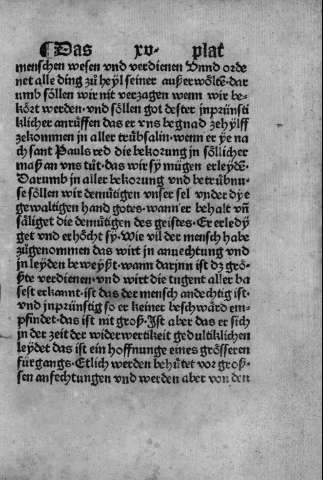 ¶ Das xv. plat
menschen wesen vnd verdienen Vnnd orde
net alle ding zů heyl seiner außerwölten. dar
umb söllen wir nit verzagen wenn wir be-
kört werden. vnd söllen got dester jnprünsti
klicher anrüffen das er vns begnad zehylff
zekommen in aller trübsalin. wenn er ye na
ch sant Pauls red die bekorung jn söllicher
maß an vns tůt. das wir sy mügen erleyden.
Darumb in aller bekorung vnd betrübnu-
se söllen wir demütigen vnser sel vnder dye
gewaltigen hand gotes. wann er behalt vnd
säliget die demütigen des geistes. Er erledy
get vnd erhöcht sy. Wie vil der mensch habe
zůgenommen das wirt jn anuechtung vnd
jn leyden beweyßt. wann darjnn ist dz grö-
ßte verdienen. vnd wirt die tugent aller ba
sest erkant. ist das der mensch andechtig ist.
vnd jnprünstig so er keiner beschwärd em-
pfindet. das ist nit groß. Ist aber das er sich
jn der zeit der widerwertikeit gedultiklichen
leydet das ist ein hoffnunge eines grösseren
fürgangs. Etlich werden behütet vor groß-
sen anfechtungen vnd werden aber von den